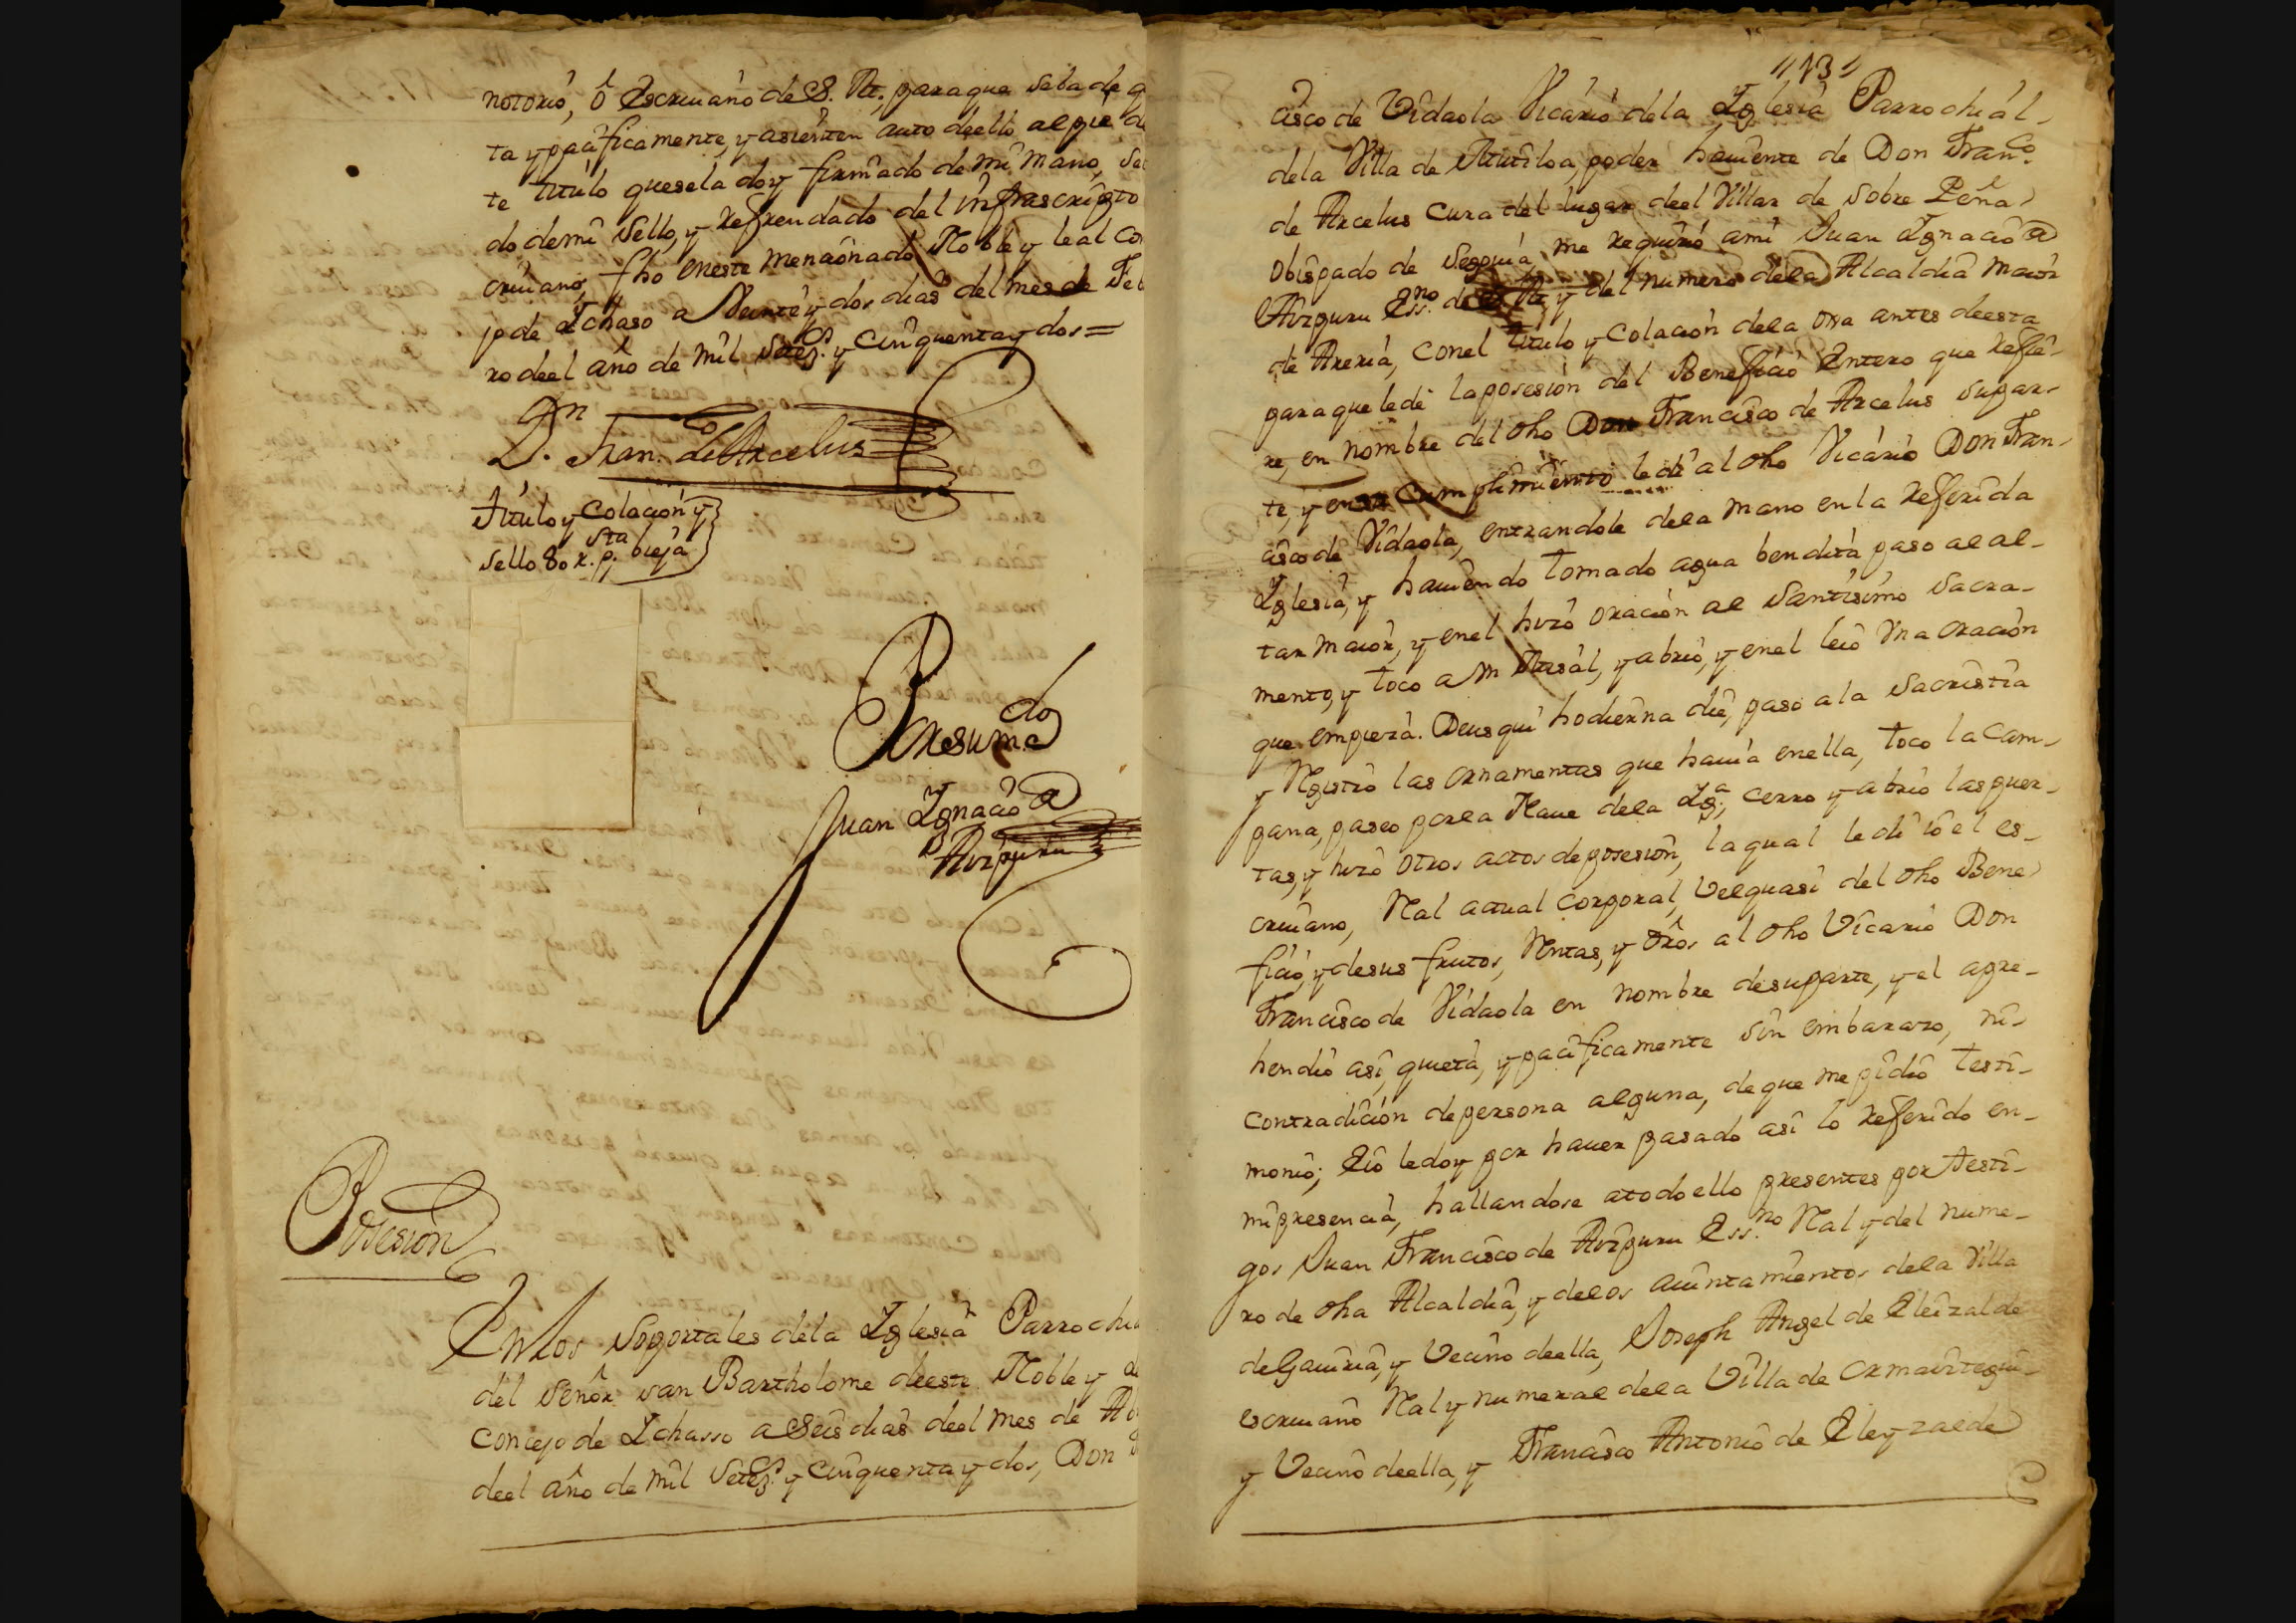 notorio, ô Escriuano de S. M. para que seba de q
ta y pacificamente, y asienten auto deello al pie de
te titulo que sela doy firmado de mi mano, se
do de mi sello, y refrendado del infrascripto
criuano, fho eneste mencionado Noble y leal con
jo de Ichaso a Veinte y dos dias del mes de Feb
ro deel año de mil setez.s y cinquenta y dos =
D.n Fran.co de Arcelus
Titulo y Colacion y
sta
sello 80 r. p. vieja
Por su m.do
Juan Ignacio de
Aizpuru
Posesion
En los soportales dela Iglesia Parrochia
del señor san Bartholome de este Noble y
concejo de Ichasso a Seis dias deel mes de Ab
deel año de mil setez.s y cinquenta y dos, Don
113
cisco de Vidaola Vicario dela Iglesia Parrochial
dela Villa de Mutiloa, poder hauiente de Don Fran.co
de Arcelus cura del lugar deel Villar de sobre Peña
obispado de Segouia, me requirio ami Juan Ignacio de
Aizpuru Ess.no de S. M. y del numero dela Alcaldia maior
de Areria, conel titulo y colacion dela otra antes deesta
para quele dè la posesion del Beneficio Entero que refie-
re, en nombre del dho Don Francisco de Arcelus su par-
te, y en su cumplimiento le di al dho Vicario Don Fran-
cisco de Vidaola, entrandole dela mano en la referida
Iglesia, y hauiendo tomado agua bendita paso al al-
tar maior, y enel hizo oracion al Santisimo Sacra-
mento, y toco a m Misal, y abrio, y enel leio Vna oracion
que empieza. Deus qui hodierna die, paso a la sacristia
y Registro las ornamentas que hauia enella, toco la cam-
pana, paseo por la Naue dela Ig.a, cerro y abrio las puer-
tas, y hizo otros actos de posesion, la qual le di iô el es-
criuano, Real actual corporal, velquasi del dho Bene
ficio, y de sus frutos, Rentas, y dros al dho Vicario Don
Francisco de Vidaola en nombre de su parte, y el apre-
hendio asi, quieta, y pacificamente sin embarazo, ni
contradicion de persona alguna, de que me pidio testi-
monio; Eio le doy por hauer pasado asi lo referido en-
mi presencia, hallandose atodo ello presentes por testi-
gos Juan Francisco de Aizpuru Ess.no Real y del nume-
ro de dha Alcaldia, y delos aiuntamientos dela Villa
de Gauiria, y Vecino deella, Joseph Angel de Eleizalde
escriuano Real y numeral dela Villa de Ormaiztegui
y Vecino deella, y Francisco Antonio de Eleyzalde